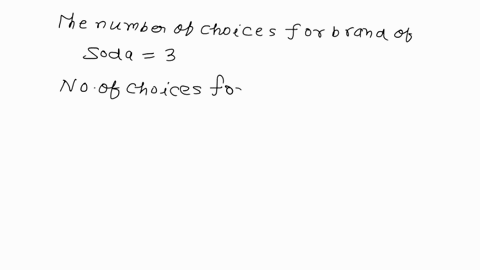 The number of choices for brand of
Soda = 3
No. of choices fo